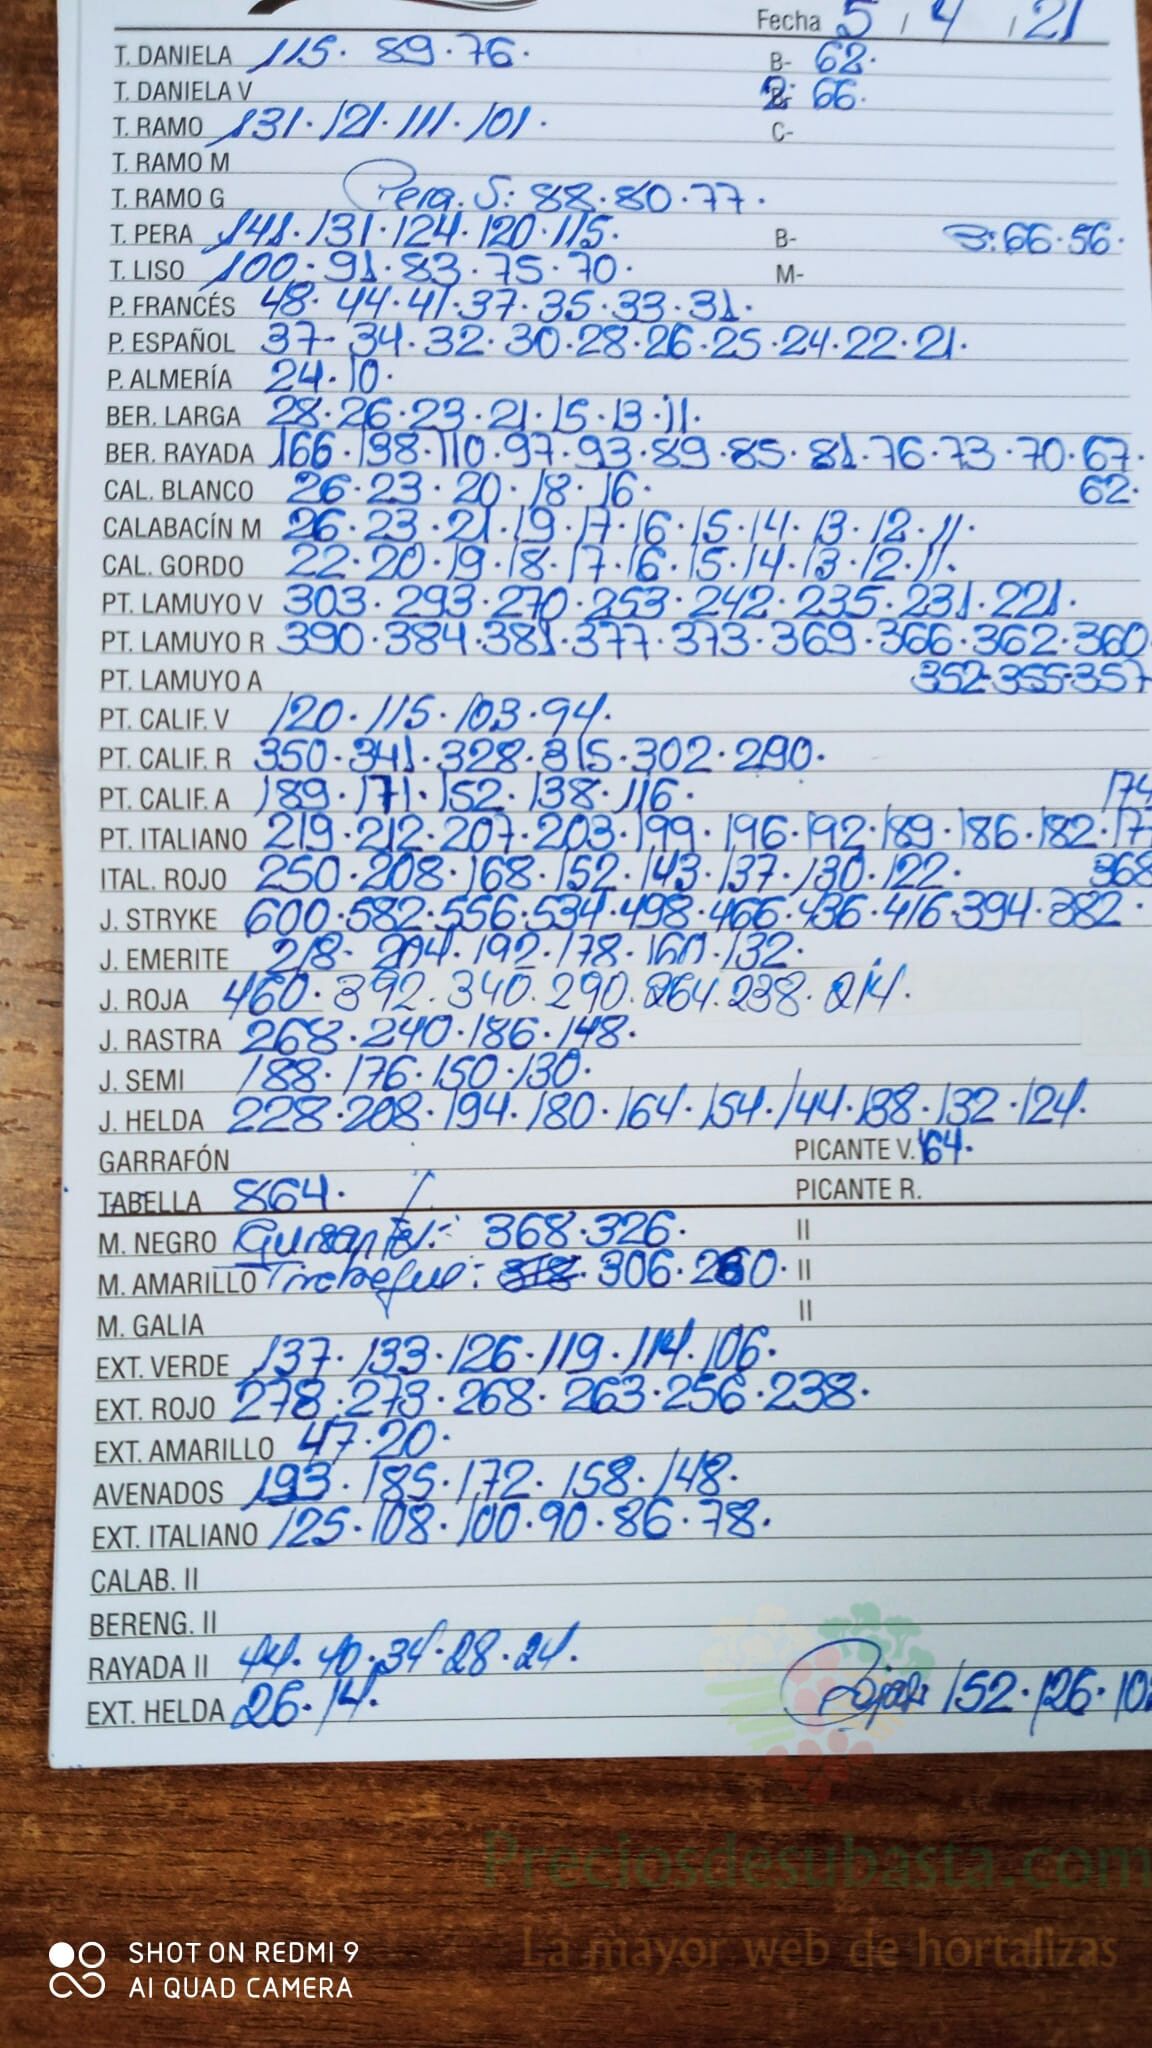 Fecha 5 / 4 / 21
T. DANIELA 115. 89. 76. B- 62.
T. DANIELA V 2- 66.
T. RAMO 131. 121. 111. 101. C-
T. RAMO M
T. RAMO G Pera. S: 88. 80. 77.
T. PERA 141. 131. 124. 120. 115. B- B: 66. 56.
T. LISO 100. 91. 83. 75. 70. M-
P. FRANCÉS 48. 44. 41. 37. 35. 33. 31.
P. ESPAÑOL 37- 34. 32. 30. 28. 26. 25. 24. 22. 21.
P. ALMERÍA 24. 10.
BER. LARGA 28. 26. 23. 21. 15. 13. 11.
BER. RAYADA 166. 138. 110. 97. 93. 89. 85. 81. 76. 73. 70. 67.
CAL. BLANCO 26. 23. 20. 18. 16. 62.
CALABACÍN M 26. 23. 21. 19. 17. 16. 15. 14. 13. 12. 11.
CAL. GORDO 22. 20. 19. 18. 17. 16. 15. 14. 13. 12. 11.
PT. LAMUYO V 303. 293. 270. 253. 242. 235. 231. 221.
PT. LAMUYO R 390. 384. 381. 377. 373. 369. 366. 362. 360
PT. LAMUYO A 352. 355. 357
PT. CALIF. V 120. 115. 103. 94.
PT. CALIF. R 350. 341. 328. 315. 302. 290.
PT. CALIF. A 189. 171. 152. 138. 116. 174
PT. ITALIANO 219. 212. 207. 203. 199. 196. 192. 189. 186. 182.
ITAL. ROJO 250. 208. 168. 152. 143. 137. 130. 122. 368
J. STRYKE 600. 582. 556. 534. 498. 466. 436. 416. 394. 382.
J. EMERITE 218- 204. 192. 178. 160. 132.
J. ROJA 460. 392. 340. 290. 264. 238. 214.
J. RASTRA 268. 240. 186. 148.
J. SEMI 188. 176. 150. 130.
J. HELDA 228. 208. 194. 180. 164. 154. 144. 138. 132. 124.
GARRAFÓN PICANTE V. 164.
TABELLA 864. PICANTE R.
M. NEGRO 368. 326. II
M. AMARILLO 306. 260. II
M. GALIA II
EXT. VERDE 137. 133. 126. 119. 114. 106.
EXT. ROJO 278. 273. 268. 263. 256. 238.
EXT. AMARILLO 47. 20.
AVENADOS 193. 185. 172. 158. 148.
EXT. ITALIANO 125. 108. 100. 90. 86. 78.
CALAB. II
BERENG. II
RAYADA II 44. 40. 34. 28. 24.
EXT. HELDA 26. 14. 152. 126.
Preciosdesubasta.com
La mayor web de hortalizas
SHOT ON REDMI 9
AI QUAD CAMERA